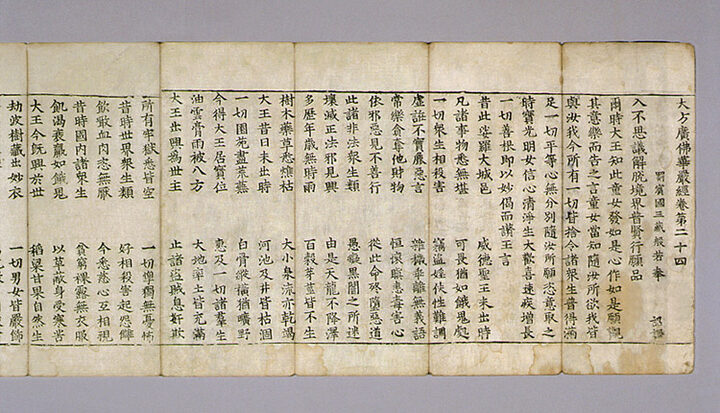 大方廣佛華嚴經卷第二十四
罽賓國三藏般若奉 詔譯
入不思議解脫境界普賢行願品
爾時大王知此童女發如是心作如是願觀
其意樂而告之言童女當知隨汝所欲我皆
與汝我今所有一切皆捨令諸衆生普得滿
足一切平等心無分別隨汝所願恣意取之
時寶光明女信心清淨生大歡喜速疾增長
一切善根即以妙偈而讃王言
昔此娑羅大城邑 威德聖王未出時
凡諸事物悉無堪 可畏猶如餓鬼處
一切衆生相殺害 竊盜婬佚性難調
虛誑不實麤惡言 雜穢乖離無義語
常樂貪奪他財物 恒懷瞋恚毒害心
依邪惡見不善行 從此命終墮惡道
此諸非法衆生類 愚癡黑闇之所迷
壞滅正法邪見興 由是天龍不降澤
多歷年歲無時雨 百穀芽莖皆不生
樹木藥草悉燋枯 大小泉流亦乾竭
大王昔日未出時 河池及井皆枯涸
一切園苑盡荒蕪 白骨縱橫猶曠野
今得大王居寶位 惠及一切諸羣生
油雲膏雨被八方 大地率土皆充滿
大王出興為世主 止諸盜賊息奸欺
所有牢獄悉皆空 一切惸獨無憂怖
昔時世界衆生類 好相殺害起怨讎
飲噉血肉恣無厭 今悉慈心互相視
昔時國内諸衆生 貧窮裸露無衣服
飢渴衰羸如餓鬼 以草蔽身受寒苦
大王今既興於世 稻粱甘果自然生
劫波樹藏出妙衣 一切男女皆嚴飾